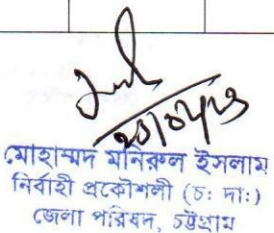 ২০/০৮/২৩
মোহাম্মদ মনিরুল ইসলাম
নির্বাহী প্রকৌশলী (চ: দা:)
জেলা পরিষদ, চট্টগ্রাম